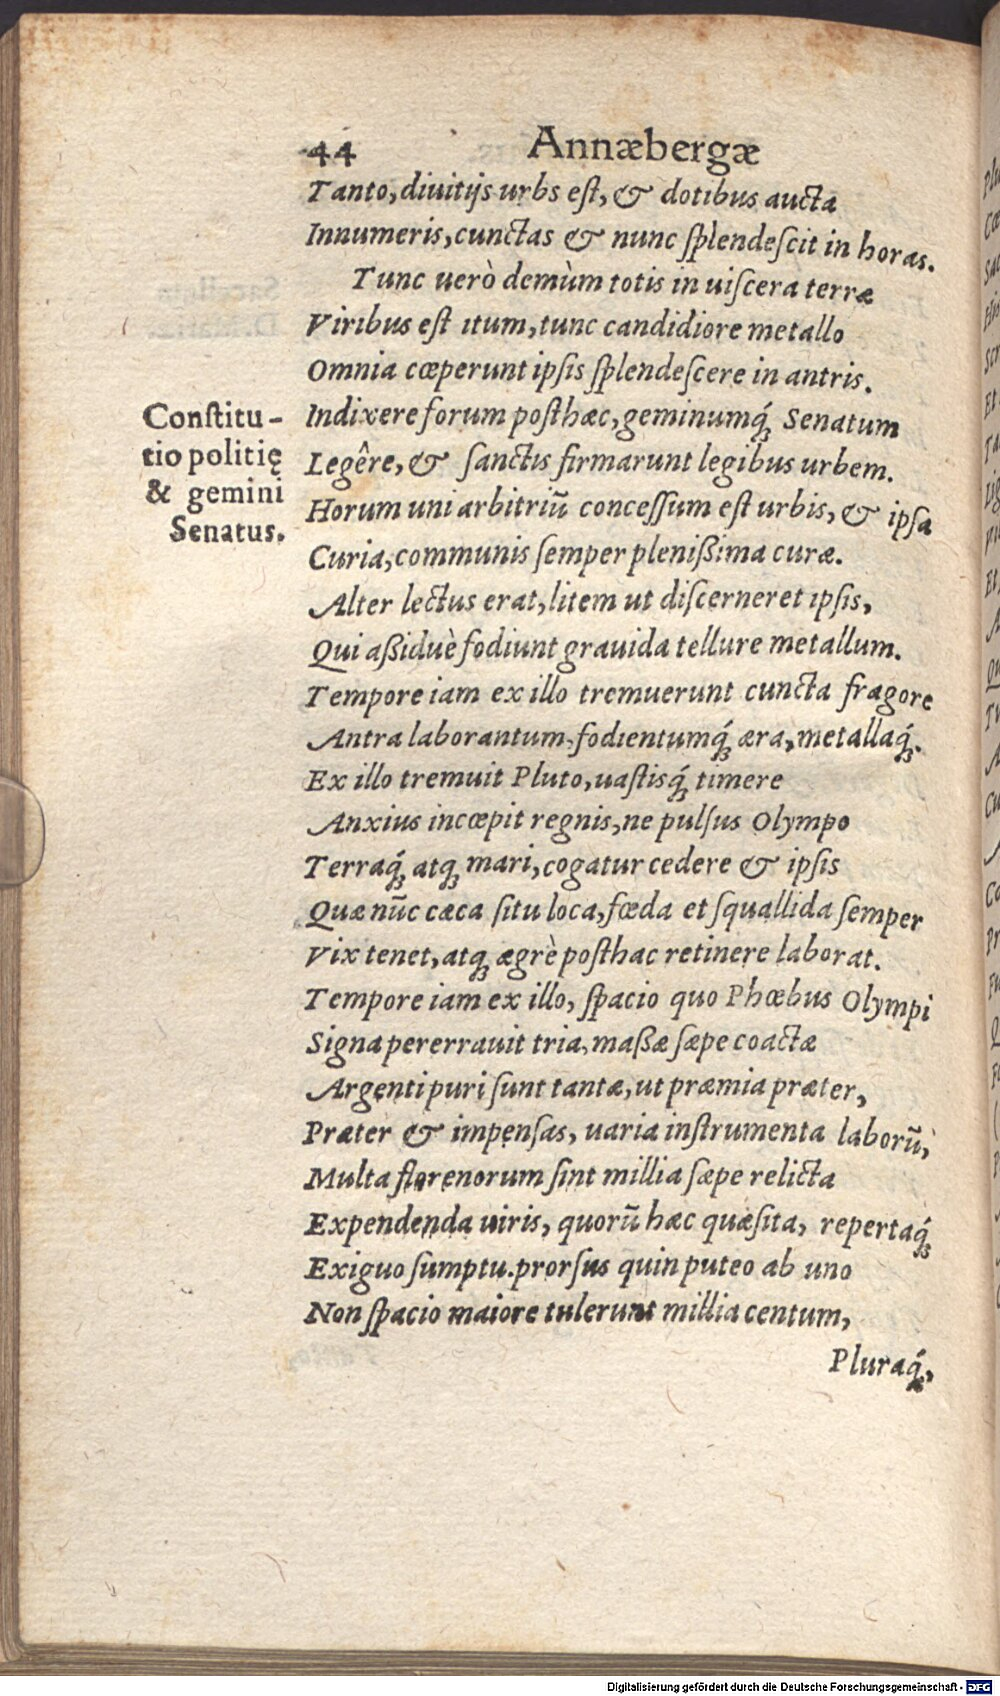 44 Annæbergæ
Tanto, diuitijs urbs eſt, & dotibus aucta
Innumeris, cunctas & nunc ſplendeſcit in horas.
Tunc uerò demùm totis in uiſcera terræ
Viribus eſt itum, tunc candidiore metallo
Omnia cœperunt ipſis ſplendeſcere in antris.
Conſtitu-
tio politię
& gemini
Senatus.
Indixere forum poſthæc, geminumq́; Senatum
Legêre, & ſanctis firmarunt legibus urbem.
Horum uni arbitriū conceſſum eſt urbis, & ipſa
Curia, communis ſemper pleniſsima curæ.
Alter lectus erat, litem ut diſcerneret ipſis,
Qui aſsiduè fodiunt grauida tellure metallum.
Tempore iam ex illo tremuerunt cuncta fragore
Antra laborantum, fodientumq́; æra, metallaq́;.
Ex illo tremuit Pluto, uaſtisq́; timere
Anxius incœpit regnis, ne pulſus Olympo
Terraq́; atq; mari, cogatur cedere & ipſis
Quæ nūc cæca ſitu loca, fœda et ſquallida ſemper
Vix tenet, atq; ægrè poſthac retinere laborat.
Tempore iam ex illo, ſpacio quo Phœbus Olympi
Signa pererrauit tria, maſsæ ſæpe coactæ
Argenti puri ſunt tantæ, ut præmia præter,
Præter & impenſas, uaria inſtrumenta laborū,
Multa florenorum ſint millia ſæpe relicta
Expendenda uiris, quorū hæc quæſita, repertaq́;
Exiguo ſumptu. prorſus quin puteo ab uno
Non ſpacio maiore tulerunt millia centum,
Pluraq́;,
Digitalisierung gefördert durch die Deutsche Forschungsgemeinschaft - DFG